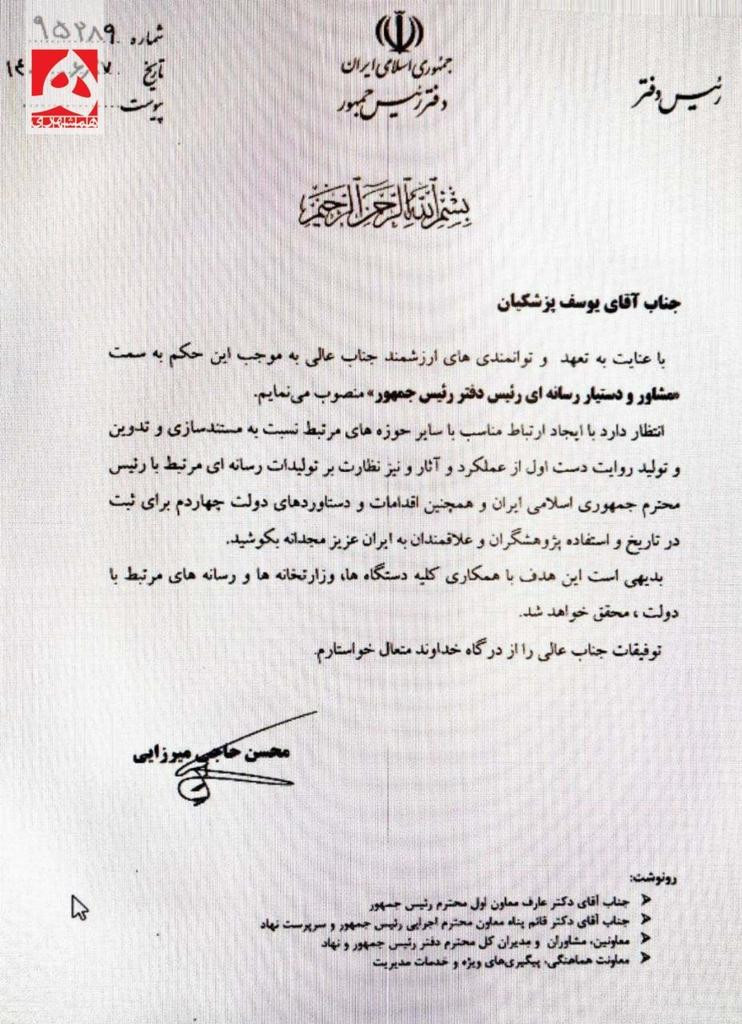 شماره ۹۵۲۸۹
تاریخ
پیوست
جمهوری اسلامی ایران
دفتر رئیس جمهور
رئیس دفتر
بسم الله الرحمن الرحیم
جناب آقای یوسف پزشکیان
با عنایت به تعهد و توانمندی های ارزشمند جناب عالی به موجب این حکم به سمت
«مشاور و دستیار رسانه ای رئیس دفتر رئیس جمهور» منصوب می‌نمایم.
انتظار دارد با ایجاد ارتباط مناسب با سایر حوزه های مرتبط نسبت به مستندسازی و تدوین
و تولید روایت دست اول از عملکرد و آثار و نیز نظارت بر تولیدات رسانه ای مرتبط با رئیس
محترم جمهوری اسلامی ایران و همچنین اقدامات و دستاوردهای دولت چهاردم برای ثبت
در تاریخ و استفاده پژوهشگران و علاقمندان به ایران عزیز مجدانه بکوشید.
بدیهی است این هدف با همکاری کلیه دستگاه ها، وزارتخانه ها و رسانه های مرتبط با
دولت ، محقق خواهد شد.
توفیقات جناب عالی را از درگاه خداوند متعال خواستارم.
محسن حاجی میرزایی
رونوشت:
جناب آقای دکتر عارف معاون اول محترم رئیس جمهور
جناب آقای دکتر قائم پناه معاون محترم اجرایی رئیس جمهور و سرپرست نهاد
معاونین، مشاوران و مدیران کل محترم دفتر رئیس جمهور و نهاد
معاونت هماهنگی، پیگیری‌های ویژه و خدمات مدیریت